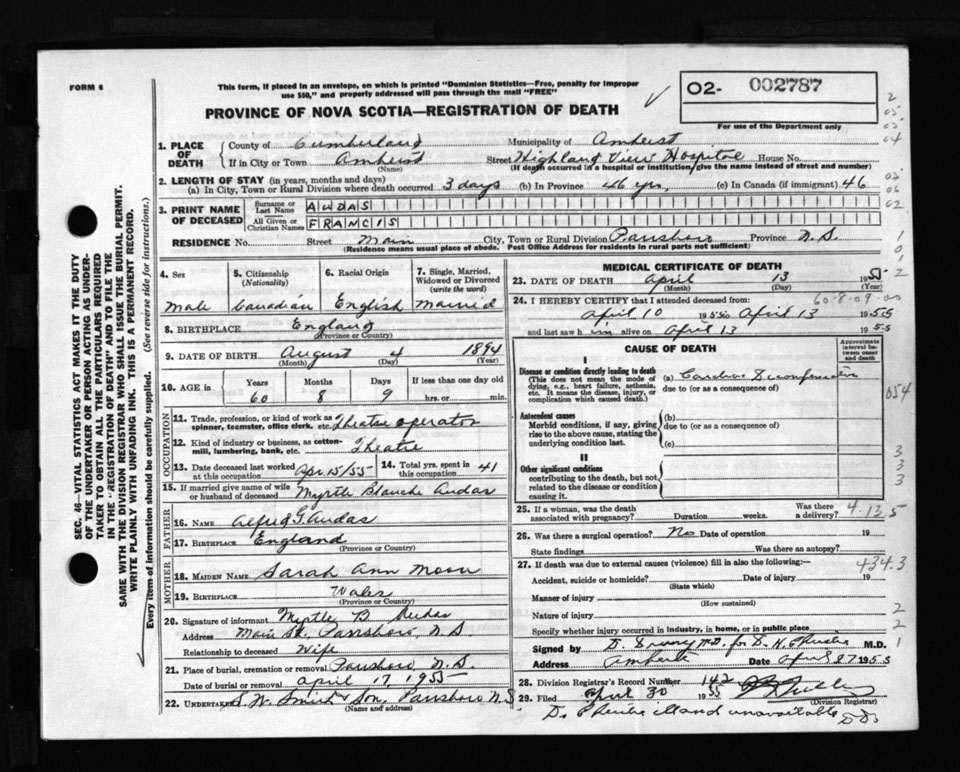 FORM 6
This form, if placed in an envelope, on which is printed "Dominion Statistics—Free, penalty for improper
use $50," and properly addressed will pass through the mail "FREE"
02- 002787
For use of the Department only
PROVINCE OF NOVA SCOTIA—REGISTRATION OF DEATH
1. PLACE OF DEATH
County of Cumberland Municipality of Amherst
If in City or Town Amherst Street Highland View Hospital House No.
(Name) (If death occurred in a hospital or institution, give its name instead of street and number)
2. LENGTH OF STAY (in years, months and days)
(a) In City, Town or Rural Division where death occurred 3 days (b) In Province 46 yrs. (c) In Canada (if immigrant) 46
3. PRINT NAME OF DECEASED
Surname or Last Name AWDAS
All Given or Christian Names FRANCIS
RESIDENCE No. Street Main City, Town or Rural Division Parrsboro Province N.S.
(Residence means usual place of abode. Post Office Address for residents in rural parts not sufficient)
4. Sex
Male
5. Citizenship (Nationality)
Canadian
6. Racial Origin
English
7. Single, Married, Widowed or Divorced (write the word)
Married
8. BIRTHPLACE England
(Province or Country)
9. DATE OF BIRTH August 4 1894
(Month) (Day) (Year)
10. AGE in Years Months Days If less than one day old
60 8 9 hrs. or min.
OCCUPATION
11. Trade, profession, or kind of work as
spinner, teamster, office clerk. etc. Theatre operator
12. Kind of industry or business, as cotton-
mill, lumbering, bank, etc. Theatre
13. Date deceased last worked
at this occupation Apr 15/55
14. Total yrs. spent in
this occupation 41
15. If married give name of wife
or husband of deceased Myrtle Blanche Audas
FATHER
16. NAME Alfred G. Audas
17. BIRTHPLACE England
(Province or Country)
MOTHER
18. MAIDEN NAME Sarah Ann
19. BIRTHPLACE Wales
(Province or Country)
20. Signature of informant Myrtle B Audas
Address Main St. Parrsboro, N.S
Relationship to deceased Wife
21. Place of burial, cremation or removal Parrsboro N.S.
Date of burial or removal April 17 1955
22. UNDERTAKER Smith & Son, Parrsboro N.S
(Name and address)
MEDICAL CERTIFICATE OF DEATH
23. DATE OF DEATH April 13 1955
(Month) (Day) (Year)
24. I HEREBY CERTIFY that I attended deceased from: 60-8-09-00
April 10 1955 to April 13 1955
and last saw him alive on April 13 1955
CAUSE OF DEATH
Approximate interval between onset and death
I
Disease or condition directly leading to death
(This does not mean the mode of
dying, e.g., heart failure, asthenia,
etc. It means the disease, injury, or
complication which caused death.)
(a) Cardiac Decompensation
due to (or as a consequence of)
Antecedent causes
Morbid conditions, if any, giving
rise to the above cause, stating the
underlying condition last.
(b)
due to (or as a consequence of)
(c)
II
Other significant conditions
contributing to the death, but not
related to the disease or condition
causing it.
25. If a woman, was the death
associated with pregnancy? Duration weeks. Was there a delivery? 4-13 5
26. Was there a surgical operation? No Date of operation 19
State findings Was there an autopsy?
27. If death was due to external causes (violence) fill in also the following:— 434.3
Accident, suicide or homicide? Date of injury 19
(State which)
Manner of injury
(How sustained)
Nature of injury
Specify whether injury occurred in industry, in home, or in public place
Signed by M.D.
Address Amherst Date April 27 1955
28. Division Registrar's Record Number 142
29. Filed April 30 1955
(Division Registrar)
SEC. 46—VITAL STATISTICS ACT MAKES IT THE DUTY
OF THE UNDERTAKER OR PERSON ACTING AS UNDER-
TAKER TO OBTAIN ALL THE PARTICULARS REQUIRED
IN THE "REGISTRATION OF DEATH" AND TO FILE THE
SAME WITH THE DIVISION REGISTRAR WHO SHALL ISSUE THE BURIAL PERMIT.
WRITE PLAINLY WITH UNFADING INK. THIS IS A PERMANENT RECORD.
Every item of information should be carefully supplied. (See reverse side for instructions.)